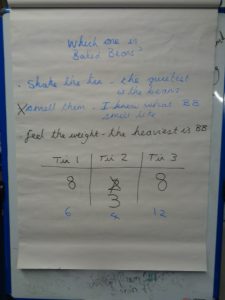 Which one is
Baked Beans?
- Shake the tin - the quietest
is the beans
X Smell them - I know what BB
smell like
- Feel the weight - the heaviest is BB
Tin 1 Tin 2 Tin 3
8 3 8
6 4 12